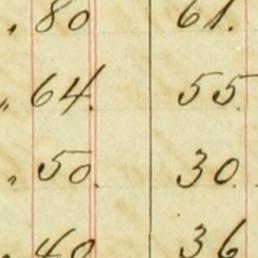 " 80 61.
" 64. 55.
" 50. 30.
" 40 36